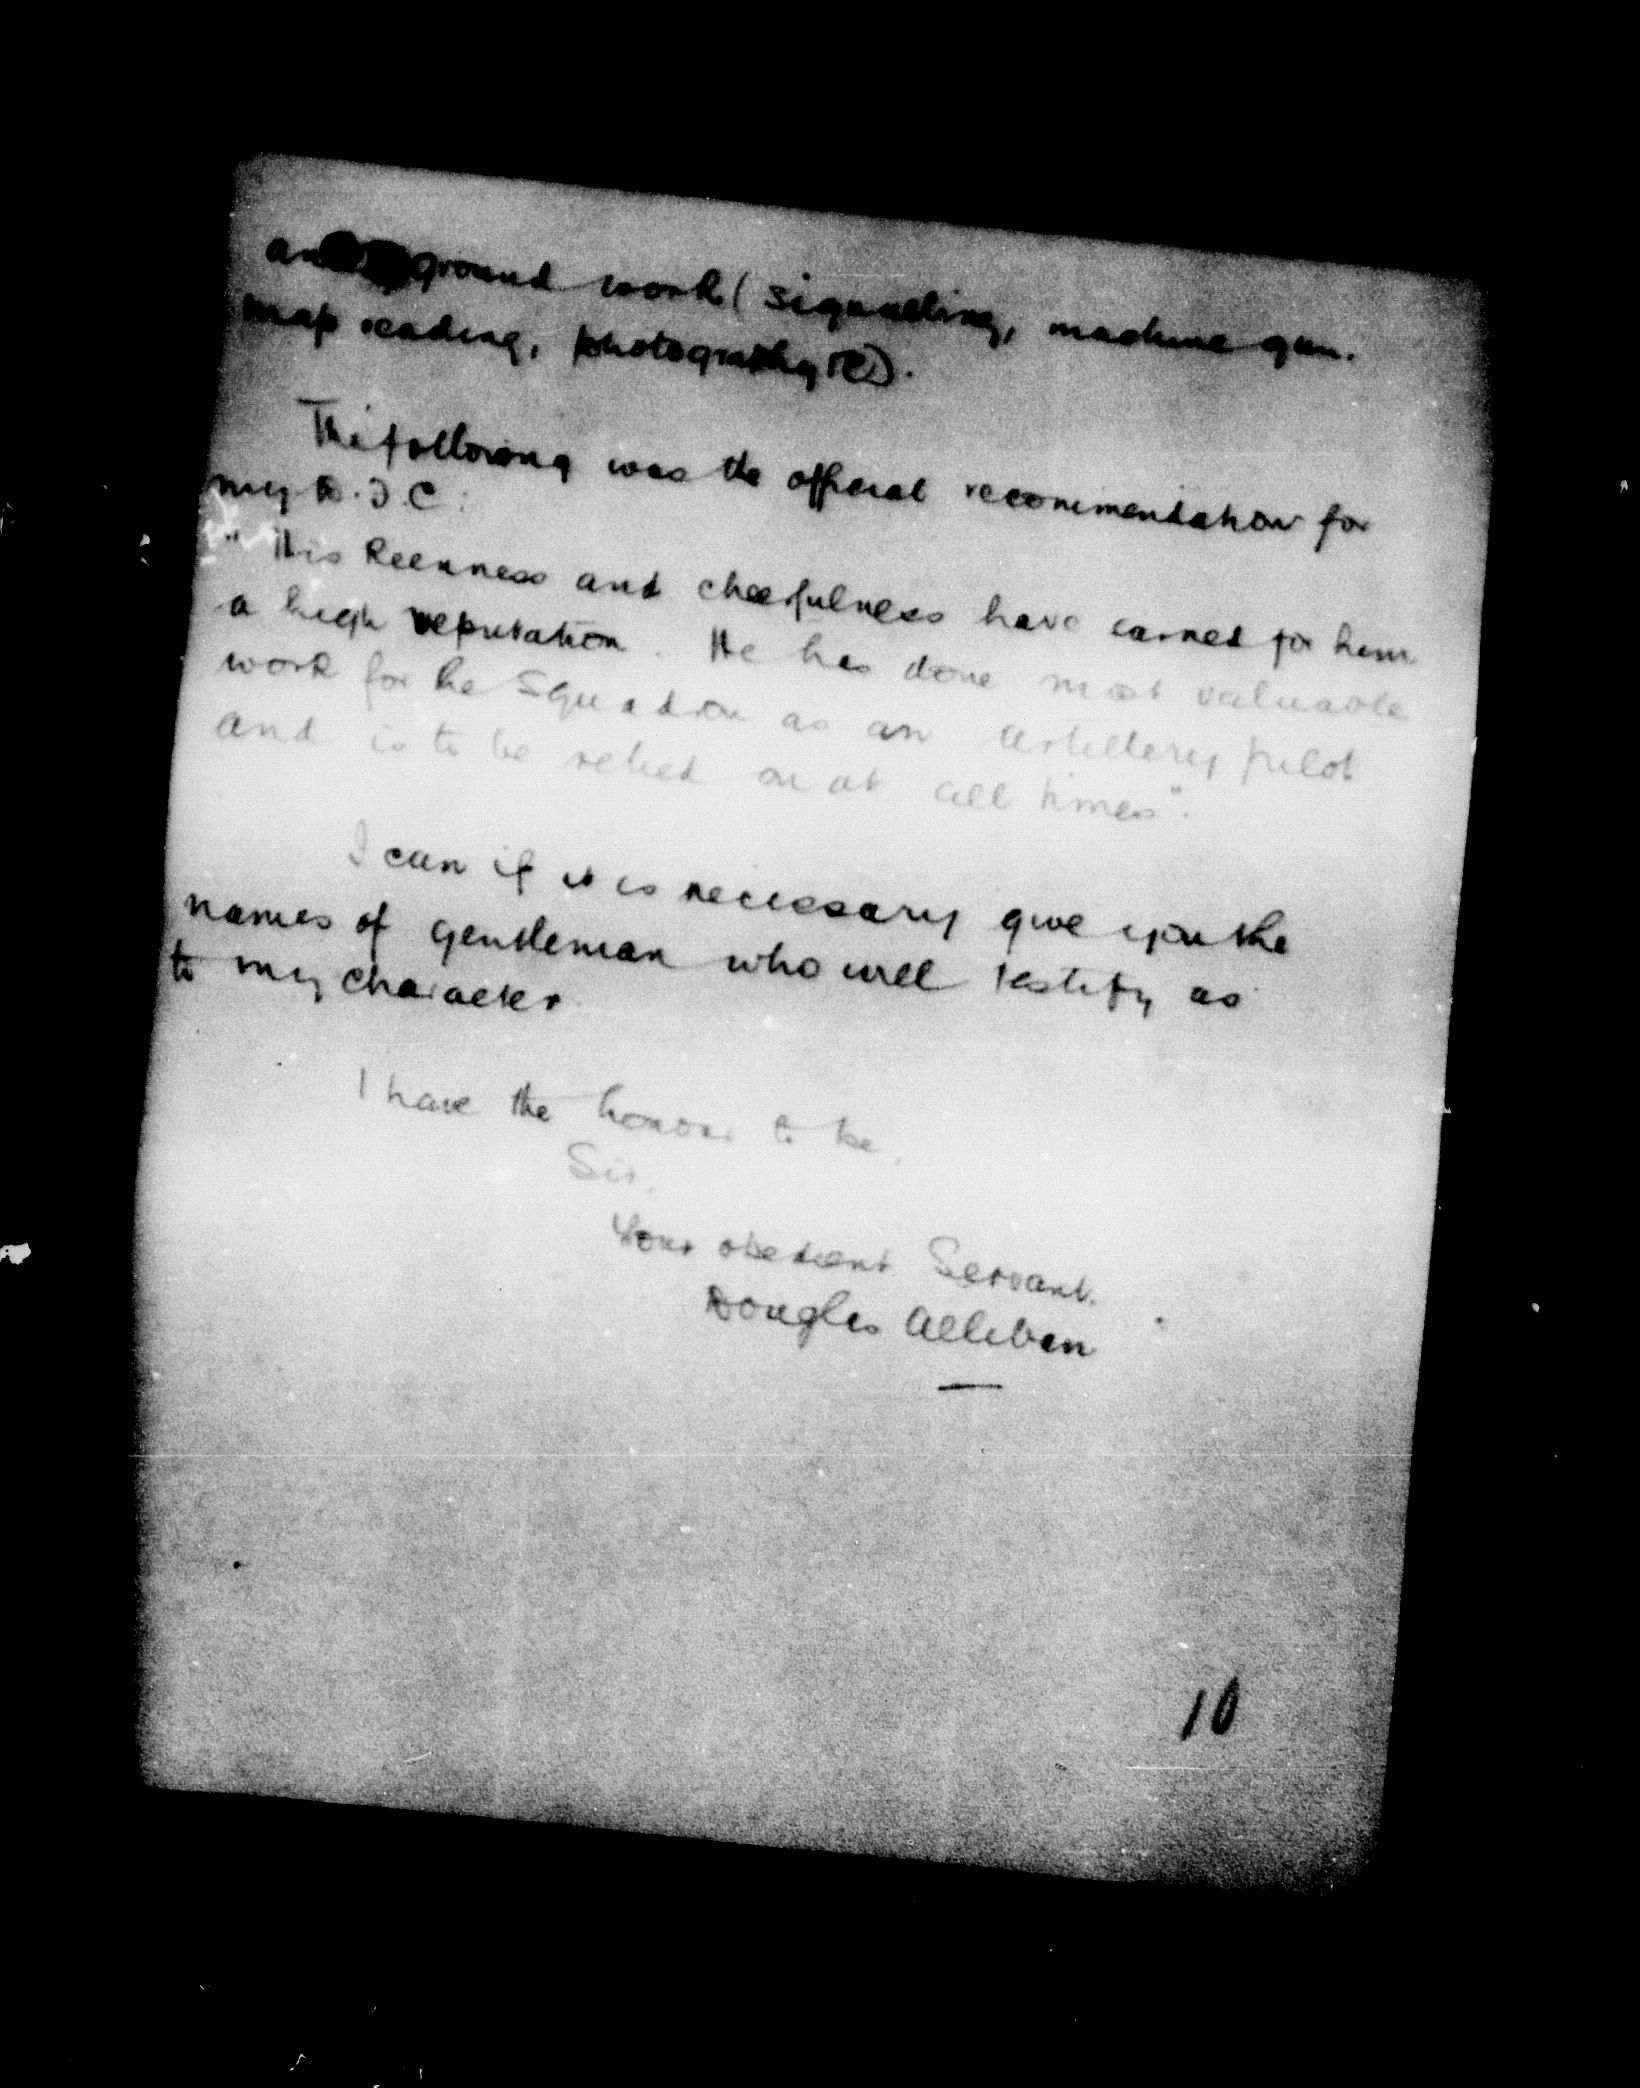 and ground work (signalling, machine gun.
map reading, photography etc).
The following was the official recommendation for
my D.F.C:
"His keenness and cheerfulness have earned for him
a high reputation. He has done most valuable
work for he Squadron as an artillery pilot
and is to be relied on at all times".
I can if it is necessary give you the
names of gentleman who will testify as
to my character
I have the honour to be,
Sir,
Your obedient Servant.
Douglas Alliban
10